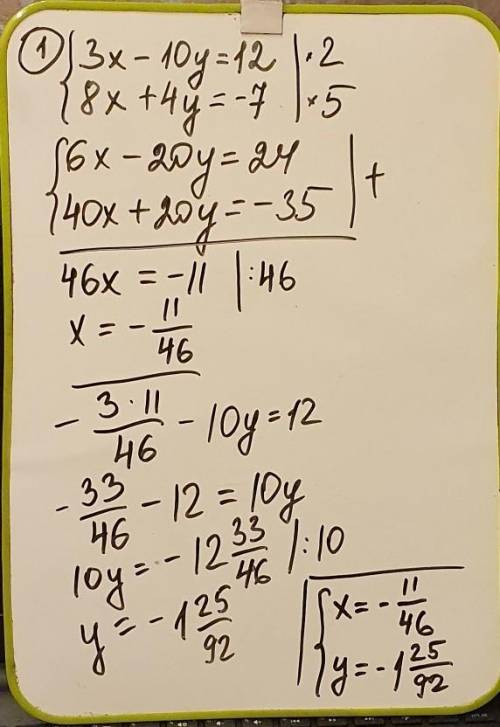 ① { 3x - 10y = 12 | · 2
{ 8x + 4y = -7 | × 5
{ 6x - 20y = 24
{ 40x + 20y = -35 | +
46x = -11 | : 46
x = - 11/46
- 3 · 11/46 - 10y = 12
- 33/46 - 12 = 10y
10y = - 12 33/46 | : 10
y = - 1 25/92
{ x = - 11/46
{ y = - 1 25/92